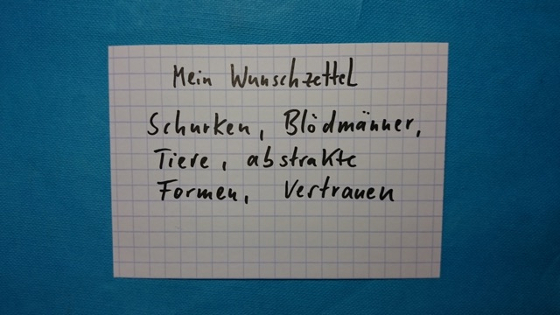 Mein Wunschzettel
Schurken, Blödmänner,
Tiere, abstrakte
Formen, Vertrauen